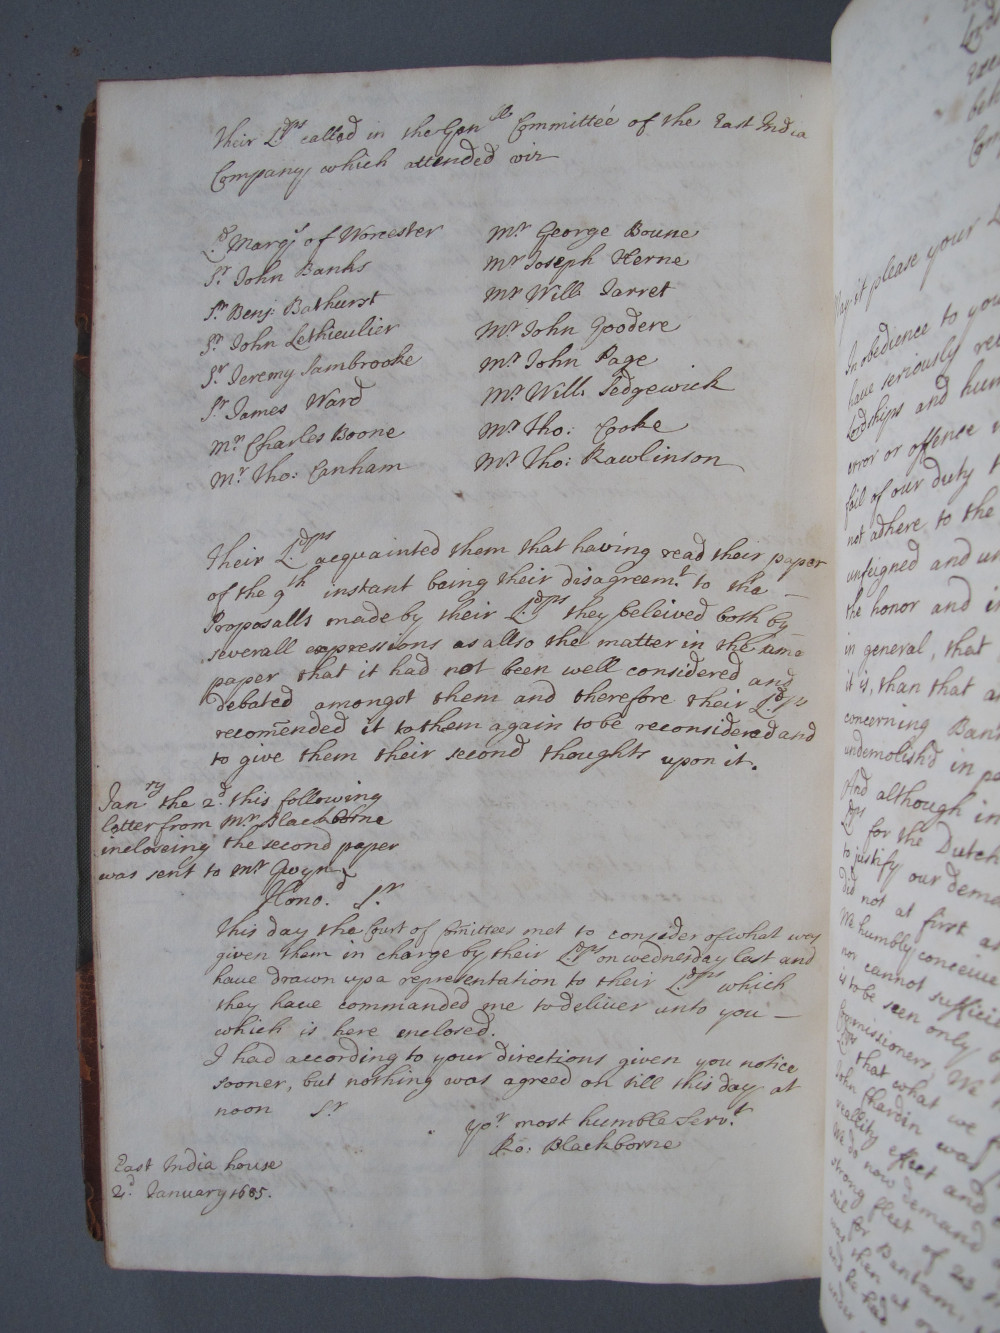 Their L:dps called in the Gen:ll Committée of the East India
Company which attended viz
L:d Marqs of Worcester
Sr John Banks
Sr Benj: Bathurst
Sr John Lethieulier
Sr Jeremy Sambrooke
Sr James Ward
Mr Charles Boone
Mr Tho: Canham
Mr George Boune
Mr Joseph Herne
Mr Will: Jarret
Mr John Goodere
Mr John Page
Mr Will: Sedgewick
Mr Tho: Cooke
Mr Tho: Rawlinson
Their L:dps acquainted them that having read their paper
of the 9th instant being their disagreemt to the
Proposalls made by their L:dps they beleived both by
severall expressions as allso the matter in the same
paper that it had not been well considered and
debated amongst them and therefore their L:dps
recom̄ended it to them again to be reconsidered and
to give them their second thoughts upon it.
Janry the 2d. this following
letter from Mr Blackborne
incloseing the second paper
was sent to Mr Gwyn
Hono:d Sr.
This day the Court of Com̄ittees met to consider of what was
given them in charge by their L:dps on wednesday last and
have drawn up a representation to their L:dps which
they have commanded me to deliver unto you —
which is here enclosed.
I had according to your directions given you notice
sooner, but nothing was agreed on till this day at
noon Sr
yor most humble Servt
Ro: Blackborne
East India house
2d. January 1685.
May it please your L
In obedience to you
have seriously re
Lordships and hum
error or offence
fail of our duty
not adhere to the
unfeigned and un
the honor and in
in general, that
it is, than that a
concerning Ban
undemolish'd in p
And although in
L:ps for the Dutch
to justify our deme
did not at first a
We humbly conceive
nor cannot suffici
is to be seen only
Commissioners, We
L:ps that what we
John Chardin was
reallity effect and
We do now demand
strong fleet of 20
sail for Bantam,
was then at
and he had
under